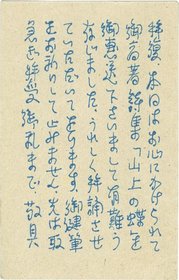 拝復、本日はお心にかけられて
御高著 詩集「山上の蝶」を
御恵送下さいまして有難う
存じました、うれしく拝誦させ
ていただいております。御健筆
をお祈りして止みません、先は取
急ぎ拝受御礼まで 敬具